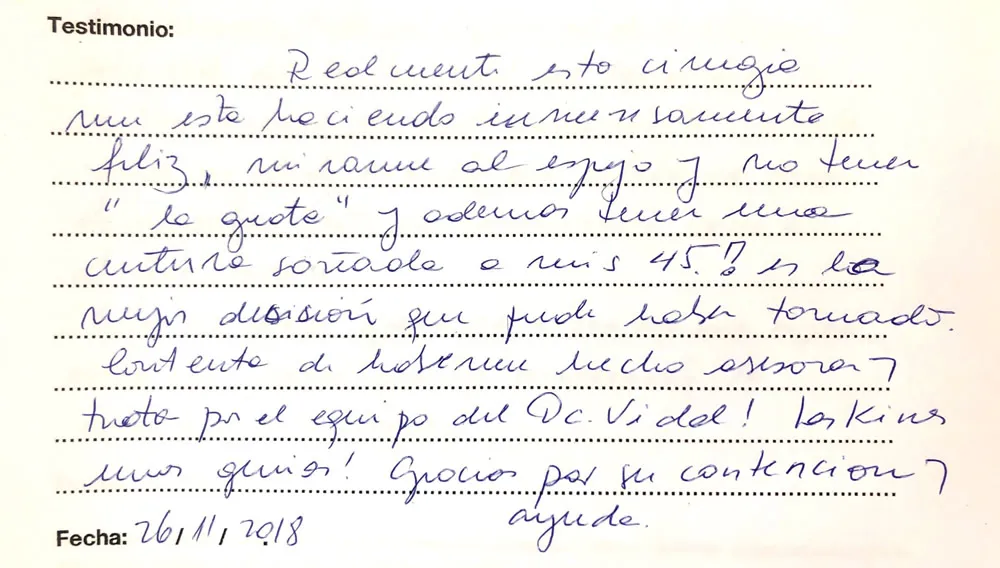 Testimonio:
Realmente esta cirugia
me esta haciendo inmensamente
feliz, mirarme al espejo y no tener
"la guata" y ademas tener una
cintura soñada a mis 45.! es la
mejor decisión que pude haber tomado.
Contenta de haberme hecho asesorar y
tratar por el equipo del Dr. Vidal! Las Kines
unos genias! Gracias por su contencion y
ayuda.
Fecha: 26/11/2018